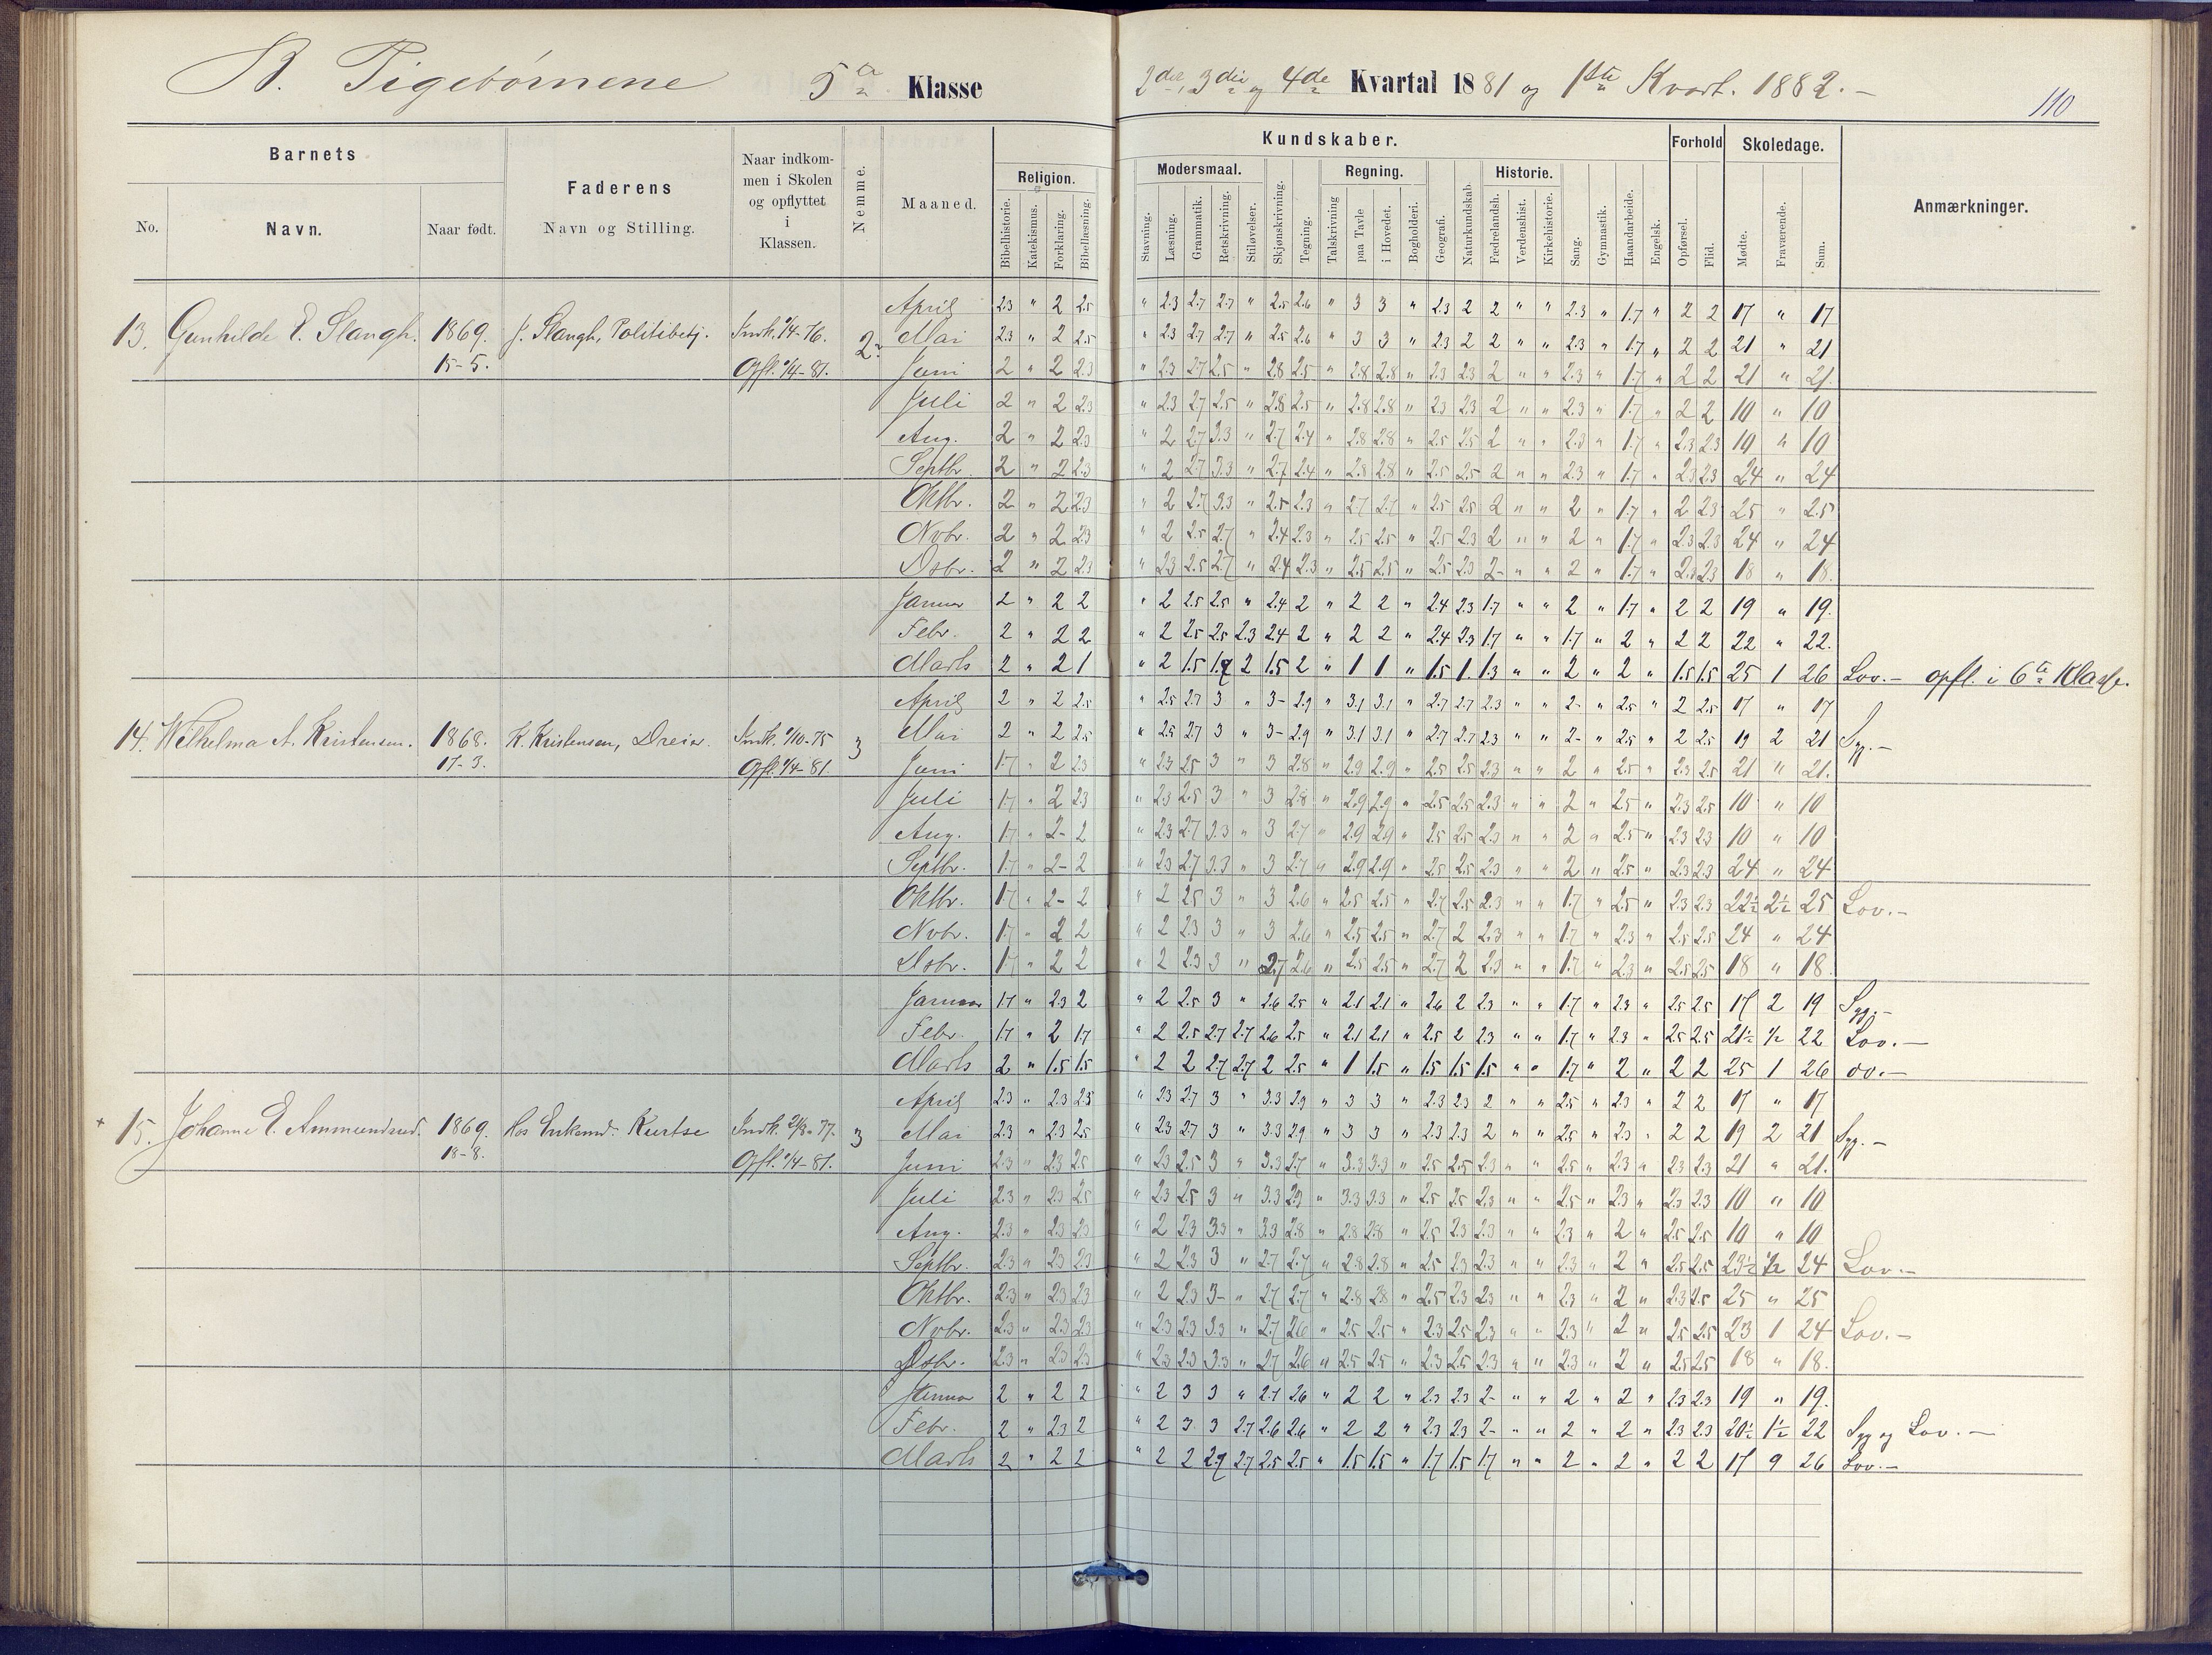 B. Pigebørnene 5te Klasse 2det, 3die og 4de Kvartal 1881 og 1ste Kvart. 1882.-
110
Barnets
No.
Navn.
Naar født.
Faderens
Navn og Stilling.
Naar indkom-
men i Skolen
og opflyttet
i
Klassen.
Nemme.
Maaned.
Kundskaber.
Religion.
Bibelhistorie.
Katekismus.
Forklaring.
Bibellæsning.
Modersmaal.
Stavning.
Læsning.
Grammatik.
Retskrivning.
Stiløvelser.
Skjønskrivning.
Tegning.
Regning.
Talskrivning
paa Tavle
i Hovedet.
Bogholderi.
Geografi.
Naturkundskab.
Historie.
Fædrelandsh.
Verdenshist.
Kirkehistorie.
Sang.
Gymnastik.
Haandarbeide.
Engelsk.
Forhold
Opførsel.
Flid.
Skoledage.
Mødte.
Fraværende.
Sum.
Anmærkninger.
13. Gunhilde E. Slangh. 1869. J. Slangh, Politibetj. Indk. 1/4-76. 2
15-5. Opfl. 1/4-81.
April 2.3 " 2 2.5 " 2.3 2.7 2.7 " 2.5 2.6 " 3 3 " 2.3 2 2 " " 2.3 " 1.7 " 2 2 17 " 17
Mai 2.3 " 2 2.5 " 2.3 2.7 2.7 " 2.5 2.6 " 3 3 " 2.3 2 2 " " 2.3 " 1.7 " 2 2 21 " 21
Juni 2 " 2 2.3 " 2.3 2.7 2.5 " 2.8 2.5 " 2.8 2.8 " 2.3 2.3 2 " " 2.3 " 1.7 " 2 2 21 " 21.
Juli 2 " 2 2.3 " 2.3 2.7 2.5 " 2.8 2.5 " 2.8 2.8 " 2.3 2.3 2 " " 2.3 " 1.7 " 2 2 10 " 10
Aug. 2 " 2 2.3 " 2 2.7 3.3 " 2.7 2.4 " 2.8 2.8 " 2.5 2.5 2 " " 2.3 " 1.7 " 2.3 2.3 10 " 10
Septbr. 2 " 2 2.3 " 2 2.7 3.3 " 2.7 2.4 " 2.8 2.8 " 2.5 2.5 2 " " 2.3 " 1.7 " 2.3 2.3 24 " 24
Oktbr. 2 " 2 2.3 " 2 2.7 3.3 " 2.5 2.3 " 2.7 2.7 " 2.5 2.5 2 " " 2 " 1.7 " 2 2.3 25 " 25
Nvbr. 2 " 2 2.3 " 2 2.5 2.7 " 2.4 2.3 " 2.5 2.5 " 2.5 2.3 2 " " 2 " 1.7 " 2.3 2.3 24 " 24
Dsbr. 2 " 2 2.3 " 2.3 2.5 2.7 " 2.4 2.3 " 2.5 2.5 " 2.5 2.3 2- " " 2 " 1.7 " 2.3 2.3 18 " 18.
Januar 2 " 2 2 " 2 2.5 2.5 " 2.4 2 " 2 2 " 2.4 2.3 1.7 " " 2 " 1.7 " 2 2 19 " 19.
Febr. 2 " 2 2 " 2 2.5 2.5 2.3 2.4 2 " 2 2 " 2.4 2.3 1.7 " " 1.7 " 2 " 2 2 22 " 22.
Marts 2 " 2 1 " 2 1.5 1.7 2 1.5 2 " 1 1 " 1.5 1 1.3 " " 2 " 2 " 1.5 1.5 25 1 26 Lov.- opfl. i 6te Klasse.
14. Wilhelma A. Kristensen. 1868. K. Kristensen, Dreier. Indk. 1/10-75 3
17-3. Opfl. 1/4-81.
April 2 " 2 2.5 " 2.5 2.7 3 " 3- 2.9 " 3.1 3.1 " 2.7 2.7 2.3 " " 2- " 2.5 " 2 2.5 17 " 17
Mai 2 " 2 2.5 " 2.5 2.7 3 " 3- 2.9 " 3.1 3.1 " 2.7 2.7 2.3 " " 2- " 2.5 " 2 2.5 19 2 21 Syg.-
Juni 1.7 " 2 2.3 " 2.3 2.5 3 " 3 2.8 " 2.9 2.9 " 2.5 2.5 2.3 " " 2 " 2.5 " 2.3 2.5 21 " 21.
Juli 1.7 " 2 2.3 " 2.3 2.5 3 " 3 2.8 " 2.9 2.9 " 2.5 2.5 2.3 " " 2 " 2.5 " 2.3 2.5 10 " 10
Aug. 1.7 " 2- 2 " 2.3 2.7 3.3 " 3 2.7 " 2.9 2.9 " 2.5 2.5 2.3 " " 2 " 2.5 " 2.3 2.3 10 " 10
Septbr. 1.7 " 2- 2 " 2.3 2.7 3.3 " 3 2.7 " 2.9 2.9 " 2.5 2.5 2.3 " " 2 " 2.5 " 2.3 2.3 24 " 24
Oktbr. 1.7 " 2- 2 " 2 2.5 3 " 3 2.6 " 2.5 2.5 " 2.7 2.5 2.3 " " 1.7 " 2.5 " 2.3 2.3 22½ 2½ 25 Lov.-
Nvbr. 1.7 " 2 2 " 2 2.3 3 " 3 2.6 " 2.5 2.5 " 2.7 2 2.3 " " 1.7 " 2.3 " 2.5 2.5 24 " 24
Dsbr. 1.7 " 2 2 " 2 2.3 3 " 2.7 2.6 " 2.5 2.5 " 2.7 2 2.3 " " 1.7 " 2.3 " 2.5 2.5 18 " 18.
Januar 1.7 " 2.3 2 " 2 2.5 3 " 2.6 2.5 " 2.1 2.1 " 2.6 2 2.3 " " 1.7 " 2.3 " 2.5 2.5 17 2 19 Syg.-
Febr. 1.7 " 2 1.7 " 2 2.5 2.7 2.7 2.6 2.5 " 2.1 2.1 " 2.5 2 2.3 " " 1.7 " 2.3 " 2.5 2.5 21½ ½ 22 Lov.-
Marts 2 " 1.5 1.5 " 2 2 2.7 2.7 2 2.5 " 1 1.5 " 1.5 1.5 1.5 " " 1.7 " 2 " 2 2 25 1 26 do.-
+ 15. Johanne E. Ammundsrud. 1869. Hos Enkemd. Kurtse Indk. 2/3-77. 3
18-8. Opfl. 1/4-81.
April 2.3 " 2.3 2.5 " 2.3 2.7 3 " 3.3 2.9 " 3 3 " 2.3 2.3 2 " " 2.5 " 2.3 " 2 2 17 " 17
Mai 2.3 " 2.3 2.5 " 2.3 2.7 3 " 3.3 2.9 " 3 3 " 2.3 2.3 2 " " 2.5 " 2.3 " 2 2 19 2 21 Syg.-
Juni 2.3 " 2.3 2.5 " 2.3 2.5 3 " 3.3 2.7 " 3.3 3.3 " 2.5 2.5 2.3 " " 2.5 " 2.3 " 2.3 2.3 21 " 21.
Juli 2.3 " 2.3 2.5 " 2.3 2.5 3 " 3.3 2.9 " 3.3 3.3 " 2.5 2.5 2.3 " " 2.5 " 2.3 " 2.3 2.3 10 " 10
Aug. 2.3 " 2.3 2.3 " 2 2.3 3.3 " 3.3 2.8 " 2.8 2.8 " 2.5 2.3 2.3 " " 2.3 " 2 " 2.5 2.5 10 " 10
Septbr. 2.3 " 2.3 2.3 " 2 2.3 3 " 2.7 2.7 " 2.8 2.8 " 2.5 2.3 2.3 " " 2.3 " 2 " 2.5 2.5 23½ ½ 24 Lov.-
Oktbr. 2.3 " 2.3 2.3 " 2 2.3 3- " 2.7 2.7 " 2.8 2.8 " 2.5 2.3 2.3 " " 2.3 " 2 " 2.3 2.5 25 " 25
Nvbr. 2.3 " 2.3 2.3 " 2.3 2.3 3.3 " 2.7 2.6 " 2.5 2.5 " 2.3 2.5 2.3 " " 2.3 " 2 " 2.5 2.5 23 1 24 Lov.-
Dsbr. 2.3 " 2.3 2.3 " 2.3 2.3 3.3 " 2.7 2.6 " 2.5 2.5 " 2.3 2.5 2.3 " " 2.3 " 2 " 2.5 2.5 18 " 18.
Januar 2 " 2 2 " 2 3 3 " 2.7 2.6 " 2 2 " 2.3 2.3 2- " " 2 " 2 " 2.3 2.3 19 " 19.
Febr. 2 " 2.3 2 " 2 3 3 2.7 2.6 2.6 " 2 2 " 2.3 2.3 2- " " 2 " 2 " 2.3 2.3 20½ 1½ 22 Syg og Lov.-
Marts 2 " 2 2 " 2 2 2.7 2.7 2.5 2.5 " 1.5 1.5 " 1.7 1.5 1.7 " " 2 " 2 " 2 2 17 9 26 Lov.-